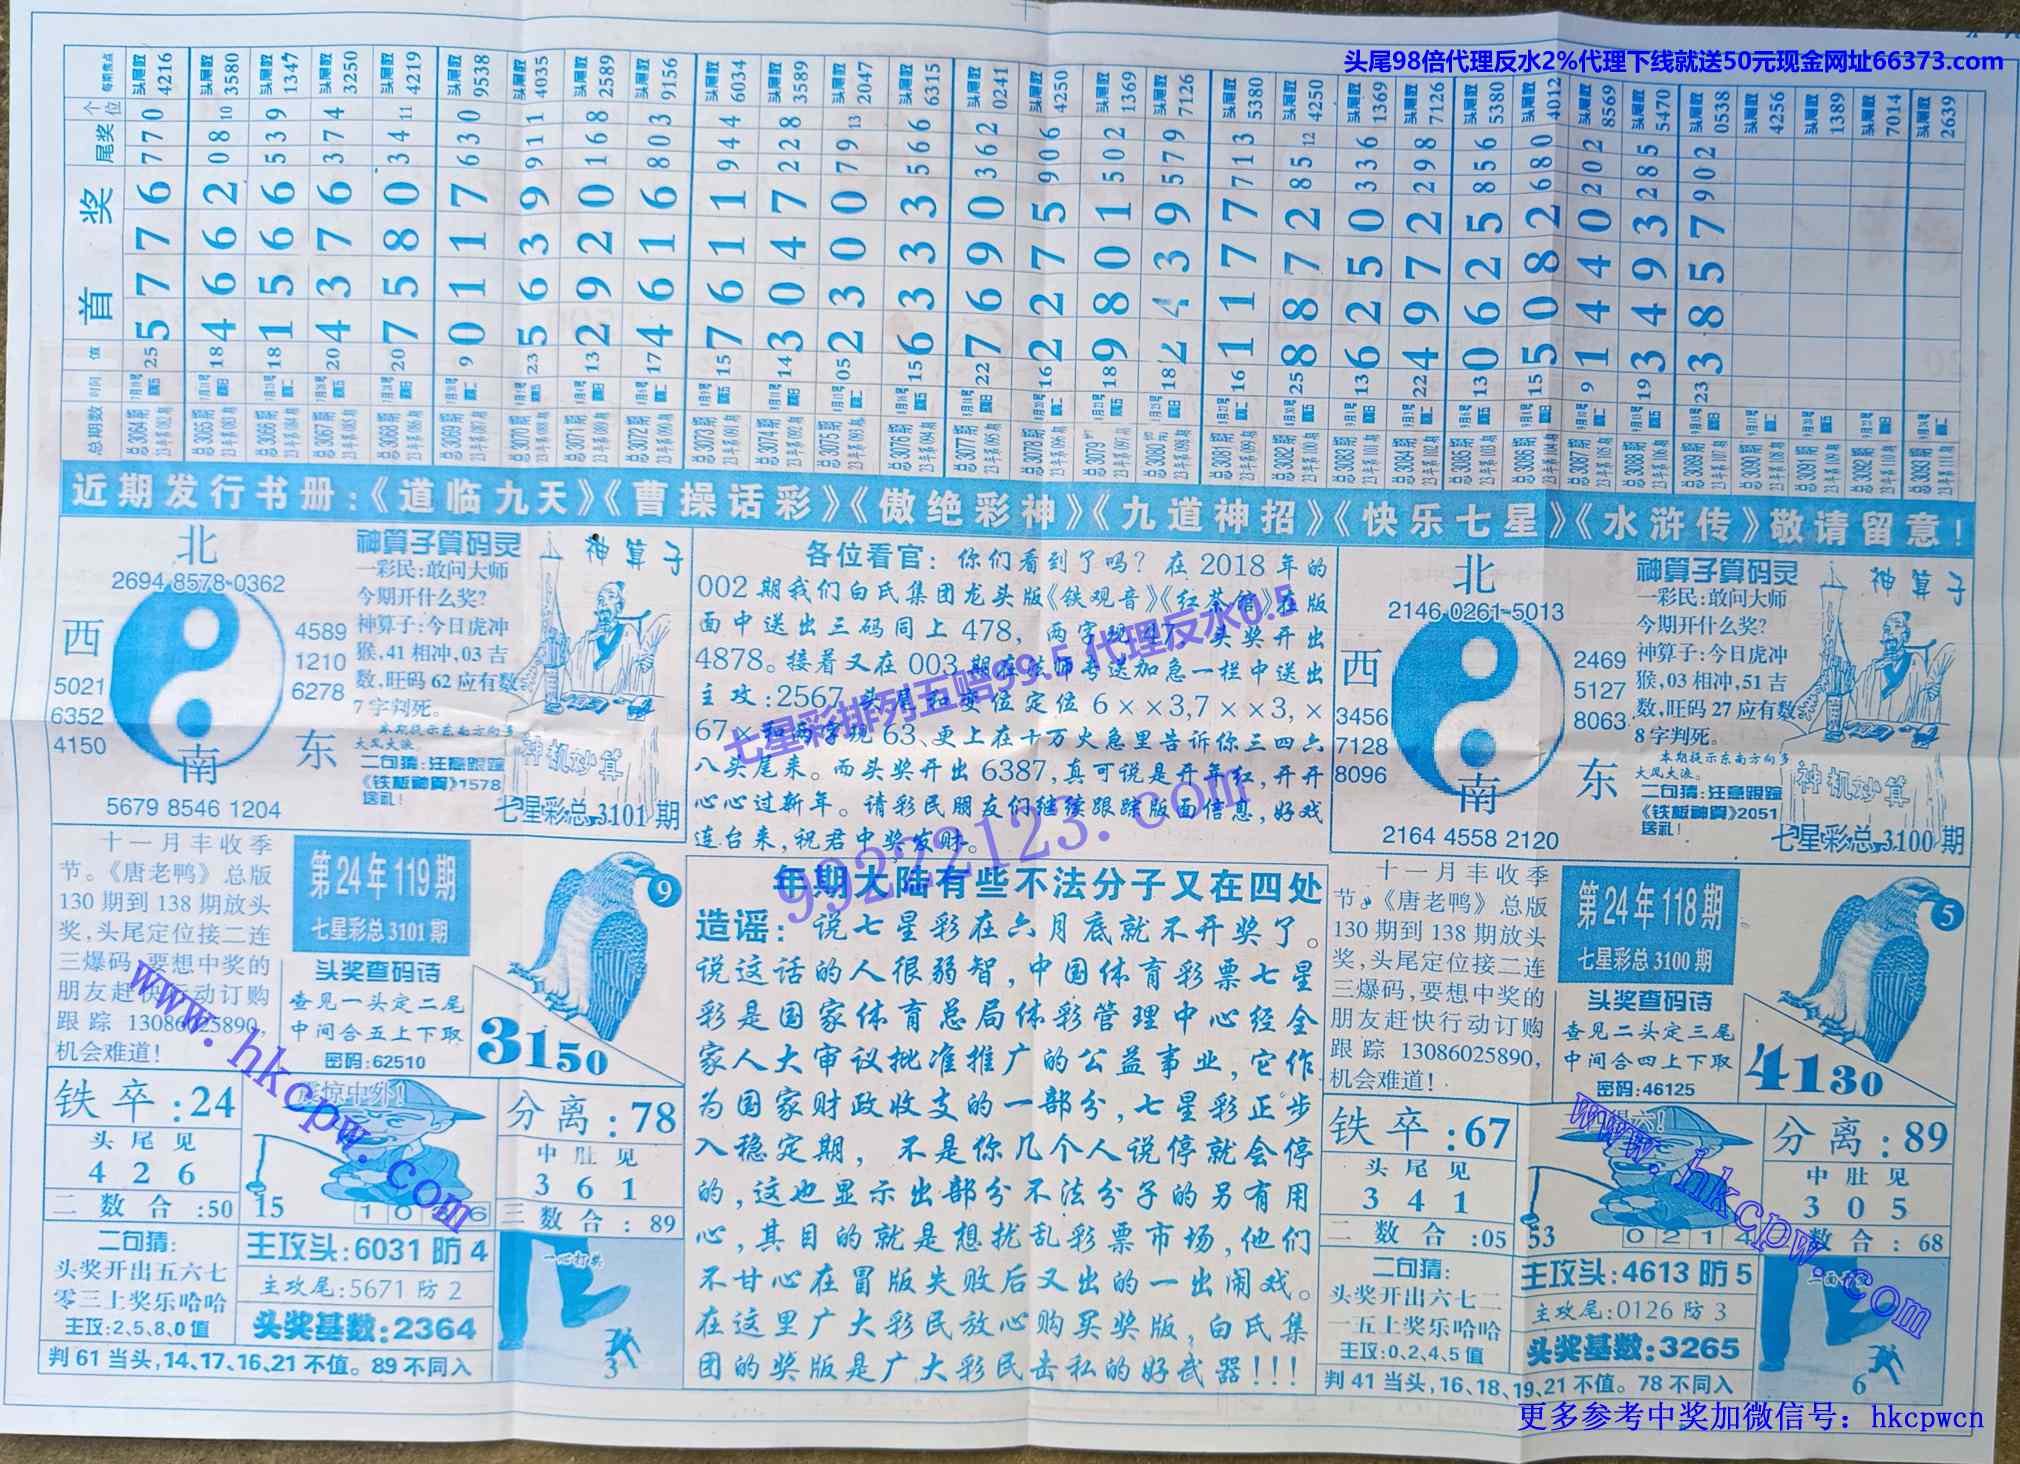 头尾98倍代理反水2%代理下线就送50元现金网址66373.com
每期焦点
个位
尾奖
首 奖
值
时间
总期数
头尾数 4216
5776 770
25
总3064期
头尾数 3580
4662 08810
18
总3065期
头尾数 1347
1566 539
18
总3066期
头尾数 3250
4376 374
20
总3067期
头尾数 4219
7580 34411
20
总3068期
头尾数 9538
0117 630
9
总3069期
头尾数 4035
5639 911
23
总3070期
头尾数 2589
2920 168
13
总3071期
头尾数 9156
4616 803
17
总3072期
头尾数 6034
7611 944
15
总3073期
头尾数 3589
3047 228
14
总3074期
头尾数 2047
2300 7913
05
总3075期
头尾数 6315
6333 566
15
总3076期
头尾数 0241
7690 362
22
总3077期
头尾数 4250
2275 906
16
总3078期
头尾数 1369
9801 502
18
总3079期
头尾数 7126
2439 579
18
总3080期
头尾数 5380
1177 713
16
总3081期
头尾数 4250
8872 28512
25
总3082期
头尾数 1369
6250 336
13
总3083期
头尾数 7126
4972 298
22
总3084期
头尾数 5380
0625 856
13
总3085期
头尾数 4012
5082 680
15
总3086期
头尾数 8569
1440 202
9
总3087期
头尾数 5470
3493 285
19
总3088期
头尾数 0538
3857 902
23
总3089期
头尾数 4256
总3090期
头尾数 1389
总3091期
头尾数 7014
总3092期
头尾数 2639
总3093期
近期发行书册:《道临九天》《曹操话彩》《傲绝彩神》《九道神招》《快乐七星》《水浒传》敬请留意!
北
2694 8578-0362
西
4589
1210
6278
5021
6352
4150
南
东
5679 8546 1204
神算子算码灵
一彩民:敢问大师
今期开什么奖?
神算子:今日虎冲
猴,41相冲,03吉
数,旺码62应有数
7字判死。
本期提示东南方向多
大风大浪。
二句猜:注意跟踪
《铁板神算》1578
送礼!
神算子
神机妙算
七星彩总3101期
各位看官:你们看到了吗?在2018年的
002期我们白氏集团龙头版《铁观音》《红茶馆》在版
面中送出三码同上478,两字现47,头奖开出
4878。接着又在003期在技师专送加急一栏中送出
主攻:2567,头尾和变位定位6××3,7××3,×
67×和两字现63、更上在十万火急里告诉你三四六
八头尾来。而头奖开出6387,真可说是开年红,开开
心心过新年。请彩民朋友们继续跟踪版面信息,好戏
连台来,祝君中奖发财。
七星彩排列五赔99.5 代理反水0.5
99222123.com
北
2146 0261-5013
西
2469
5127
8063
3456
7128
8096
南
东
2164 4558 2120
神算子算码灵
一彩民:敢问大师
今期开什么奖?
神算子:今日虎冲
猴,03相冲,51吉
数,旺码27应有数
8字判死。
本期提示东南方向多
大风大浪。
二句猜:注意跟踪
《铁板神算》2051
送礼!
神算子
神机妙算
七星彩总3100期
十一月丰收季
节。《唐老鸭》总版
130期到138期放头
奖,头尾定位接二连
三爆码,要想中奖的
朋友赶快行动订购
跟踪13086025890,
机会难道!
第24年119期
七星彩总3101期
头奖查码诗
查见一头定二尾
中间合五上下取
密码:62510
9
3150
铁卒:24
头尾见
426
二数合:50
震惊中外!
15
分离:78
中肚见
361
三数合:89
二句猜:
头奖开出五六七
零三上奖乐哈哈
主攻:2,5,8,0值
主攻头:6031防4
主攻尾:5671防2
头奖基数:2364
3
判61当头,14、17、16、21不值。89不同入
www.hkcpw.com
年期大陆有些不法分子又在四处
造谣:说七星彩在六月底就不开奖了。
说这话的人很弱智,中国体育彩票七星
彩是国家体育总局体彩管理中心经全
国家人大审议批准推广的公益事业,它作
为国家财政收支的一部分,七星彩正步
入稳定期,不是你几个人说停就会停
的,这也显示出部分不法分子的另有用
心,其目的就是想扰乱彩票市场,他们
不甘心在冒版失败后又出的一出闹戏。
在这里广大彩民放心购买奖版,白氏集
团的奖版是广大彩民击私的好武器!!!
十一月丰收季
节。《唐老鸭》总版
130期到138期放头
奖,头尾定位接二连
三爆码,要想中奖的
朋友赶快行动订购
跟踪13086025890,
机会难道!
第24年118期
七星彩总3100期
头奖查码诗
查见二头定三尾
中间合四上下取
密码:46125
5
4130
铁卒:67
头尾见
341
二数合:05
53
0214
分离:89
中肚见
305
数合:68
二句猜:
头奖开出六七二
一五上奖乐哈哈
主攻:0、2、4、5值
主攻头:4613防5
主攻尾:0126防3
头奖基数:3265
6
判41当头,16、18、19、21不值。78不同入
www.hkcpw.com
更多参考中奖加微信号:hkcpwcn